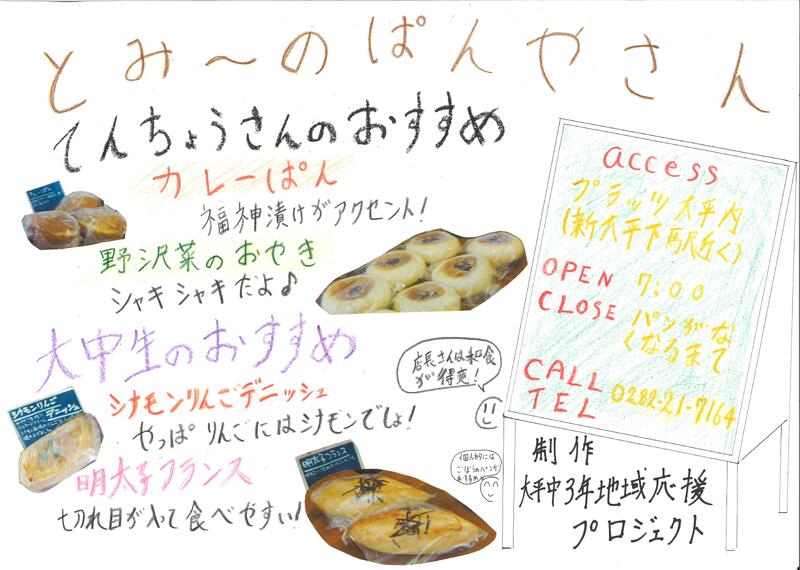 とみ～のぱんやさん
てんちょうさんのおすすめ
カレーぱん
福神漬けがアクセント!
野沢菜のおやき
シャキシャキだよ♪
大中生のおすすめ
シナモンりんごデニッシュ
やっぱりんごにはシナモンでしょ!
明太子フランス
切れ目が入って食べやすい!
カレーぱん
シナモンりんご
デニッシュ
明太子フランス
店長さんは和食
が得意!
個人的には
ごぼうのパンが
おすすめ
access
プラッツ大平内
(新大平下駅近く)
OPEN 7:00
CLOSE パンがな
くなるまで
CALL
TEL 0282-21-7164
制作
大平中3年地域応援
プロジェクト